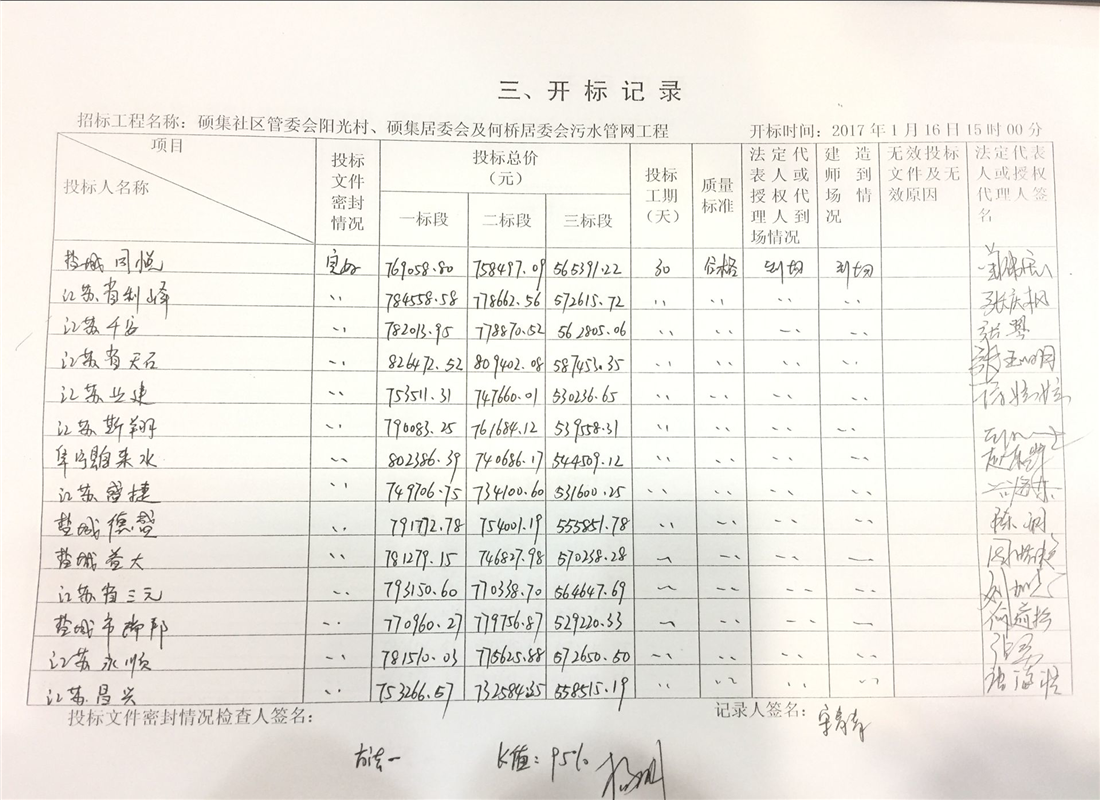 三、开标记录
招标工程名称：硕集社区管委会阳光村、硕集居委会及何桥居委会污水管网工程 开标时间：2017年1月16日15时00分
项目 投标人名称 投标文件密封情况 投标总价（元） 一标段 二标段 三标段 投标工期（天） 质量标准 法定代表人或授权代理人到场情况 建造师到场情况 无效投标文件及无效原因 法定代表人或授权代理人签名
盐城同悦 完好 769058.80 758497.09 565391.22 30 合格 到场 到场
江苏省利峰 〃 784558.58 778662.56 572615.72 〃 〃 〃 〃 张庆枫
江苏千安 〃 782013.95 778870.52 562805.06 〃 〃 〃 〃
江苏省天石 〃 826472.52 809402.08 587453.35 〃 〃 〃 〃
江苏业建 〃 753511.31 747660.01 530236.65 〃 〃 〃 〃
江苏斯翔 〃 790083.25 761684.12 539558.31 〃 〃 〃 〃
阜宁县自来水 〃 802386.39 740686.17 544509.12 〃 〃 〃 〃
江苏盛捷 〃 749706.75 734100.60 531600.25 〃 〃 〃 〃
盐城德盛 〃 791772.78 754001.19 555851.78 〃 〃 〃 〃
盐城益大 〃 781279.15 746827.98 570238.28 〃 〃 〃 〃
江苏省三元 〃 793150.60 770338.70 564647.69 〃 〃 〃 〃
盐城市瑞邦 〃 770960.27 779756.87 529220.33 〃 〃 〃 〃
江苏永顺 〃 781510.03 775625.88 572650.50 〃 〃 〃 〃
江苏昌兴 〃 753266.57 732584.35 558515.19 〃 〃 〃 〃
投标文件密封情况检查人签名： 记录人签名：
方法一 K值：95%